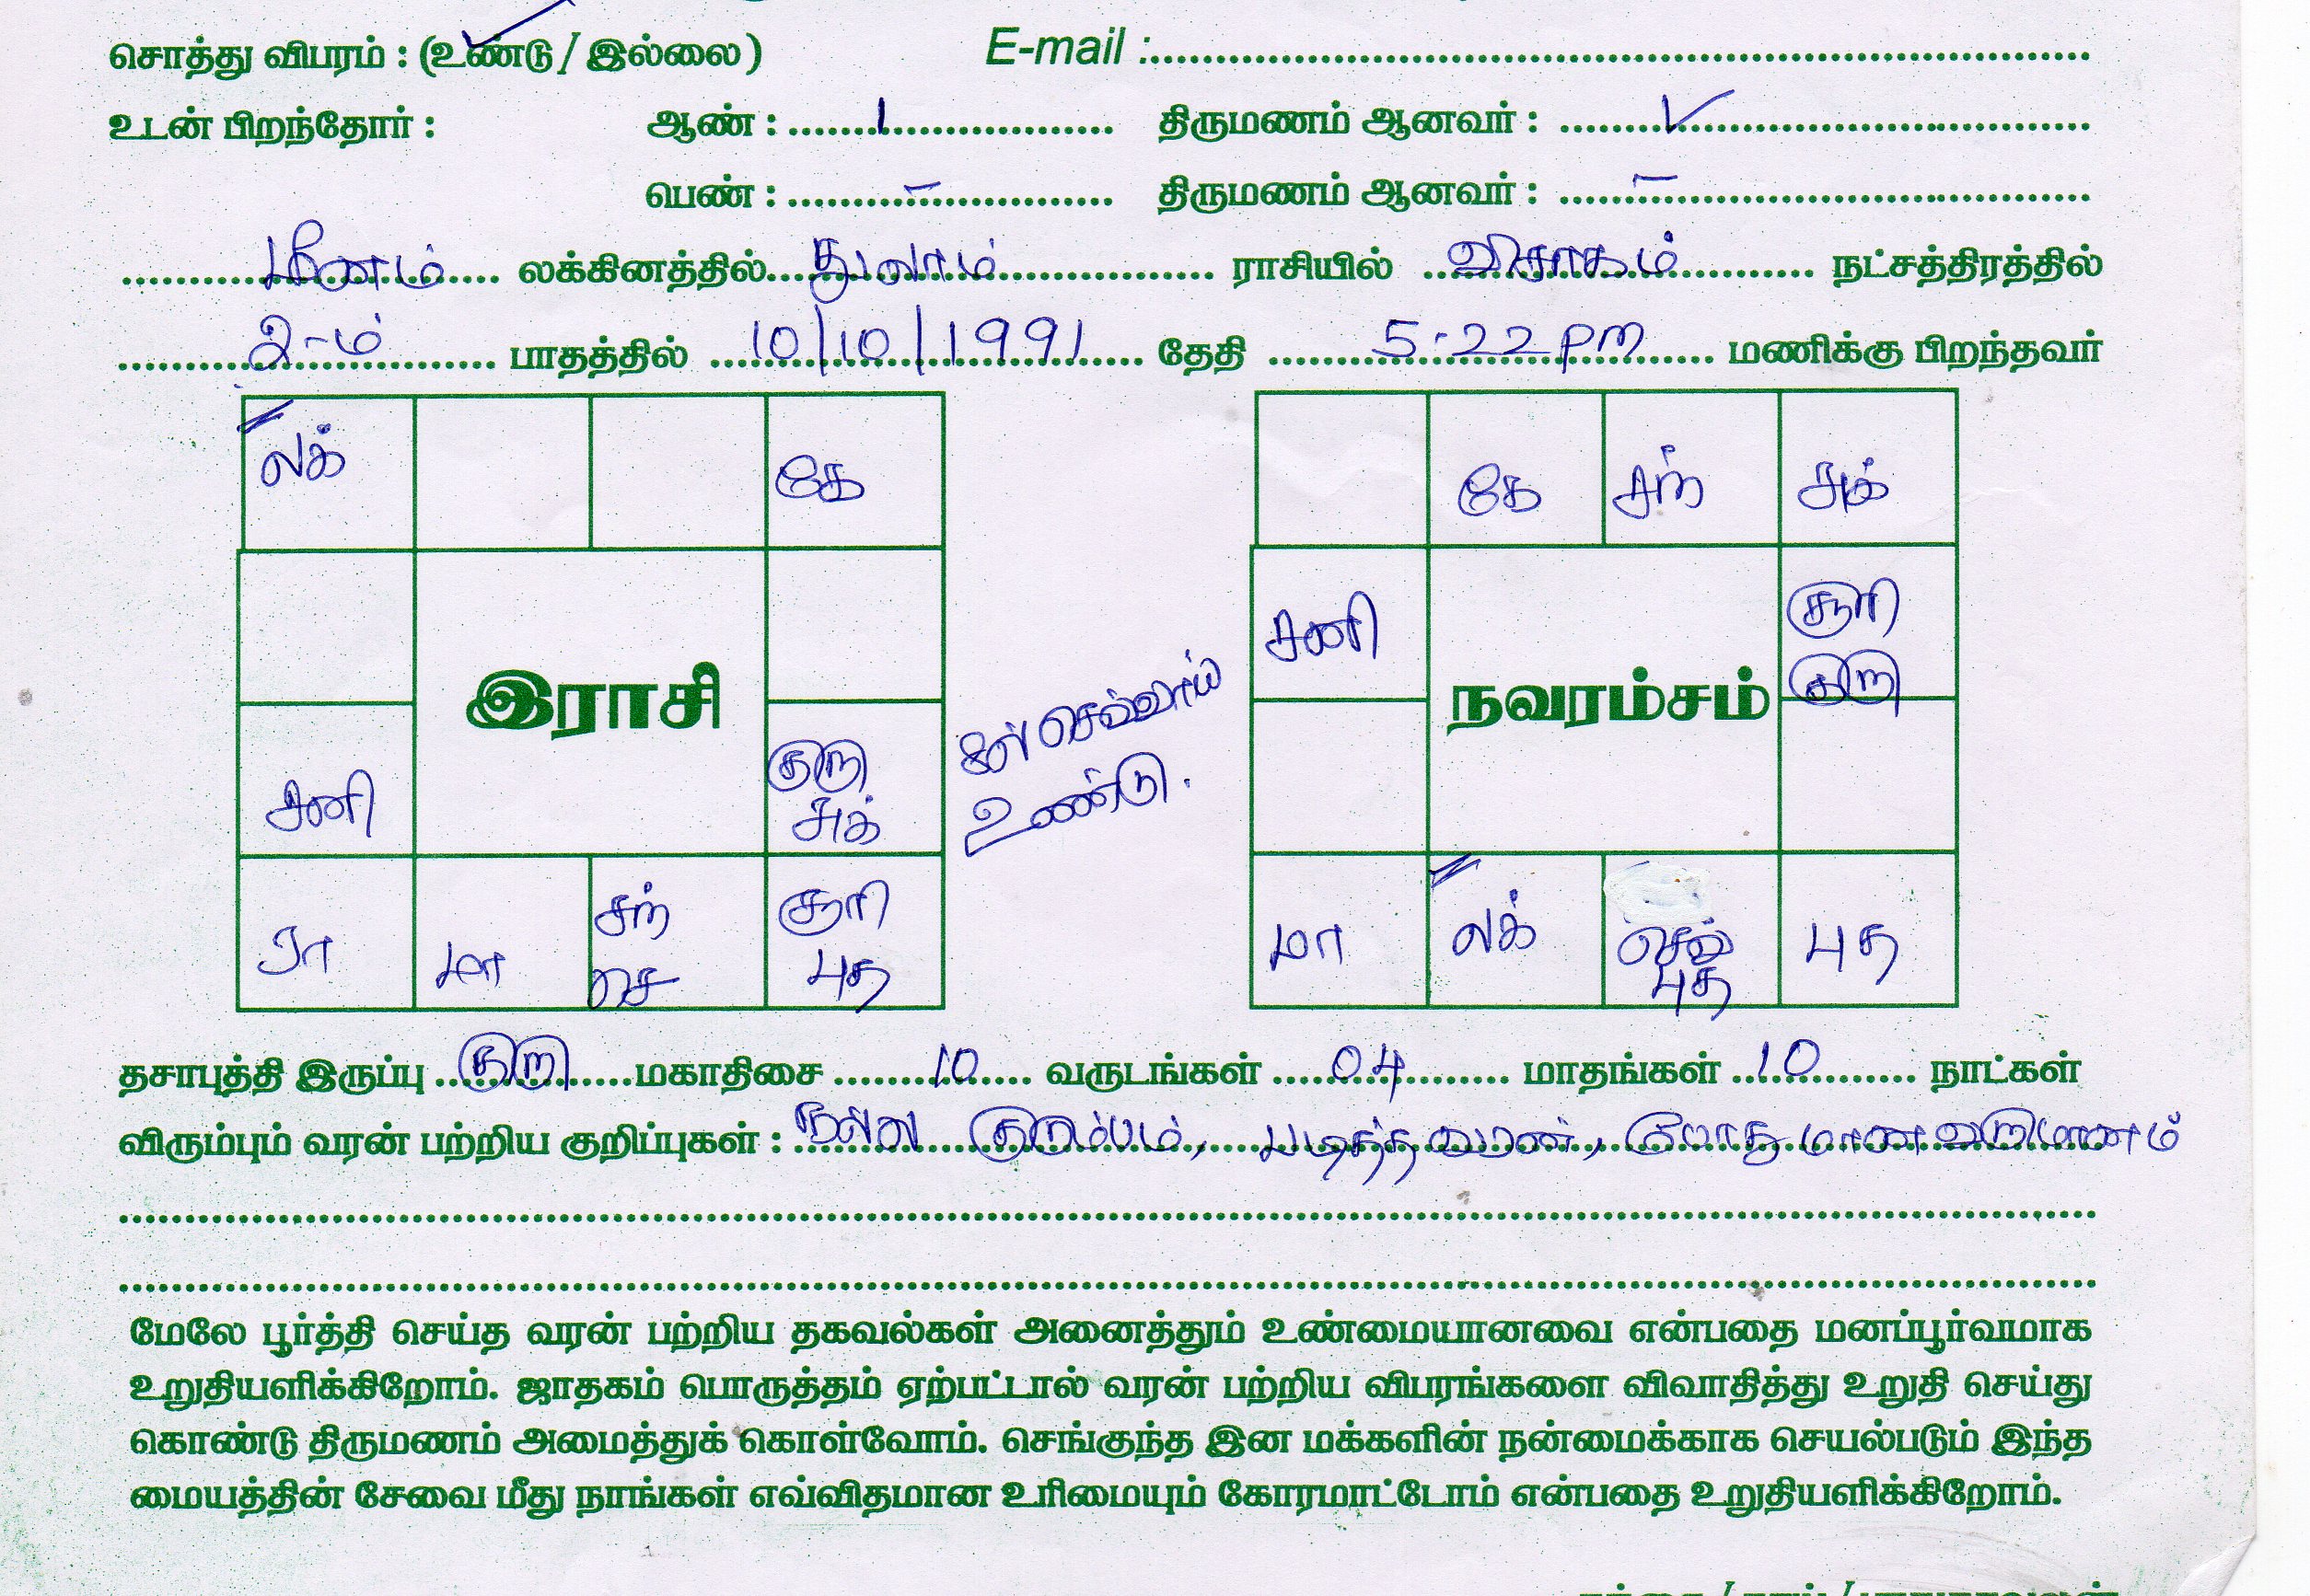 சொத்து விபரம் : (உண்டு / இல்லை) E-mail :
உடன் பிறந்தோர் : ஆண் : 1 திருமணம் ஆனவர் : ✓
பெண் : – திருமணம் ஆனவர் : –
மீனம் லக்கினத்தில் துலாம் ராசியில் விசாகம் நட்சத்திரத்தில்
2-ம் பாதத்தில் 10/10/1991 தேதி 5.22 pm மணிக்கு பிறந்தவர்
லக் கே
இராசி
சனி குரு சுக்
ரா மா சந் செ சூரி புத
செவ்வாய்
உண்டு.
கே சந் சுக்
சனி சூரி குரு
நவரம்சம்
மா லக் செவ் புத புத
தசாபுத்தி இருப்பு குரு மகாதிசை 10 வருடங்கள் 04 மாதங்கள் 10 நாட்கள்
விரும்பும் வரன் பற்றிய குறிப்புகள் : நல்ல குடும்பம், படித்த வரன், போதுமான வருமானம்
மேலே பூர்த்தி செய்த வரன் பற்றிய தகவல்கள் அனைத்தும் உண்மையானவை என்பதை மனப்பூர்வமாக
உறுதியளிக்கிறோம். ஜாதகம் பொருத்தம் ஏற்பட்டால் வரன் பற்றிய விபரங்களை விவாதித்து உறுதி செய்து
கொண்டு திருமணம் அமைத்துக் கொள்வோம். செங்குந்த இன மக்களின் நன்மைக்காக செயல்படும் இந்த
மையத்தின் சேவை மீது நாங்கள் எவ்விதமான உரிமையும் கோரமாட்டோம் என்பதை உறுதியளிக்கிறோம்.